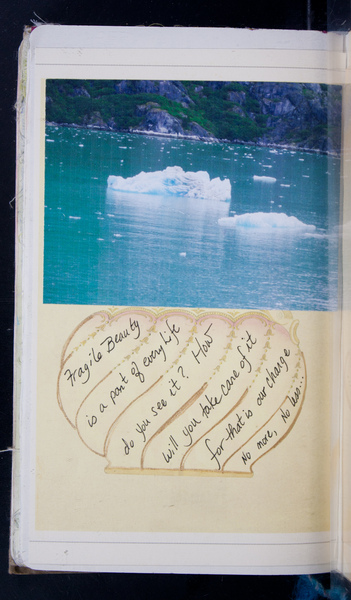 Fragile Beauty
is a part of every Life
do you see it? How
will you take care of it
for that is our charge
No more, No less...